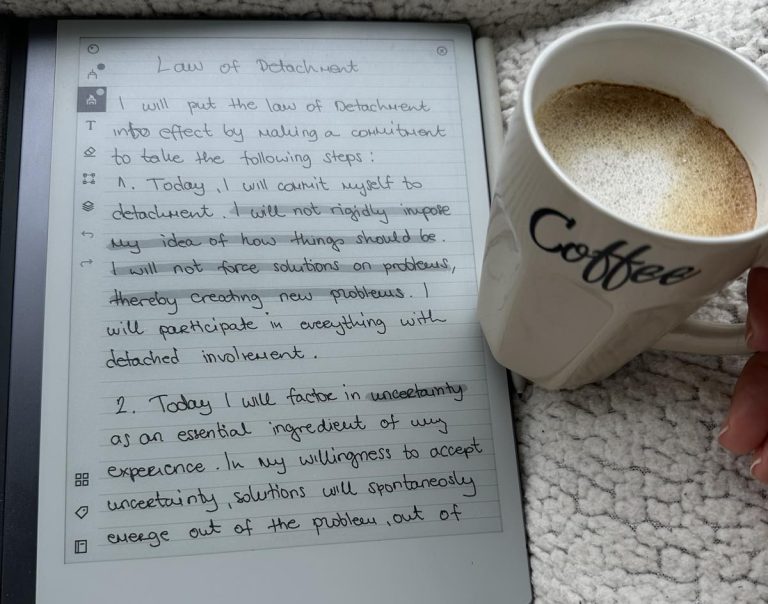 Law of Detachment
I will put the law of Detachment
into effect by making a commitment
to take the following steps:
1. Today, I will commit myself to
detachment. I will not rigidly impose
my idea of how things should be.
I will not force solutions on problems,
thereby creating new problems. I
will participate in everything with
detached involvement.
2. Today I will factor in uncertainty
as an essential ingredient of my
experience. In my willingness to accept
uncertainty, solutions will spontaneosly
emerge out of the problem, out of
T
Coffee